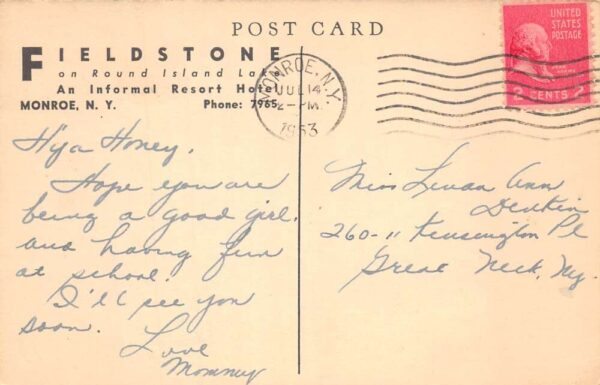 POST CARD
FIELDSTONE
on Round Island Lake
An Informal Resort Hotel
MONROE, N. Y. Phone: 7965
MONROE, N.Y.
JUL 14
2-PM
1953
UNITED
STATES
POSTAGE
2 CENTS 2
Hiya Honey,
Hope you are
being a good girl.
and having fun
at school.
I'll see you
soon.
Love
Mommy
Miss Ann
260-11 Kensington Pl
Great Neck, Ny.